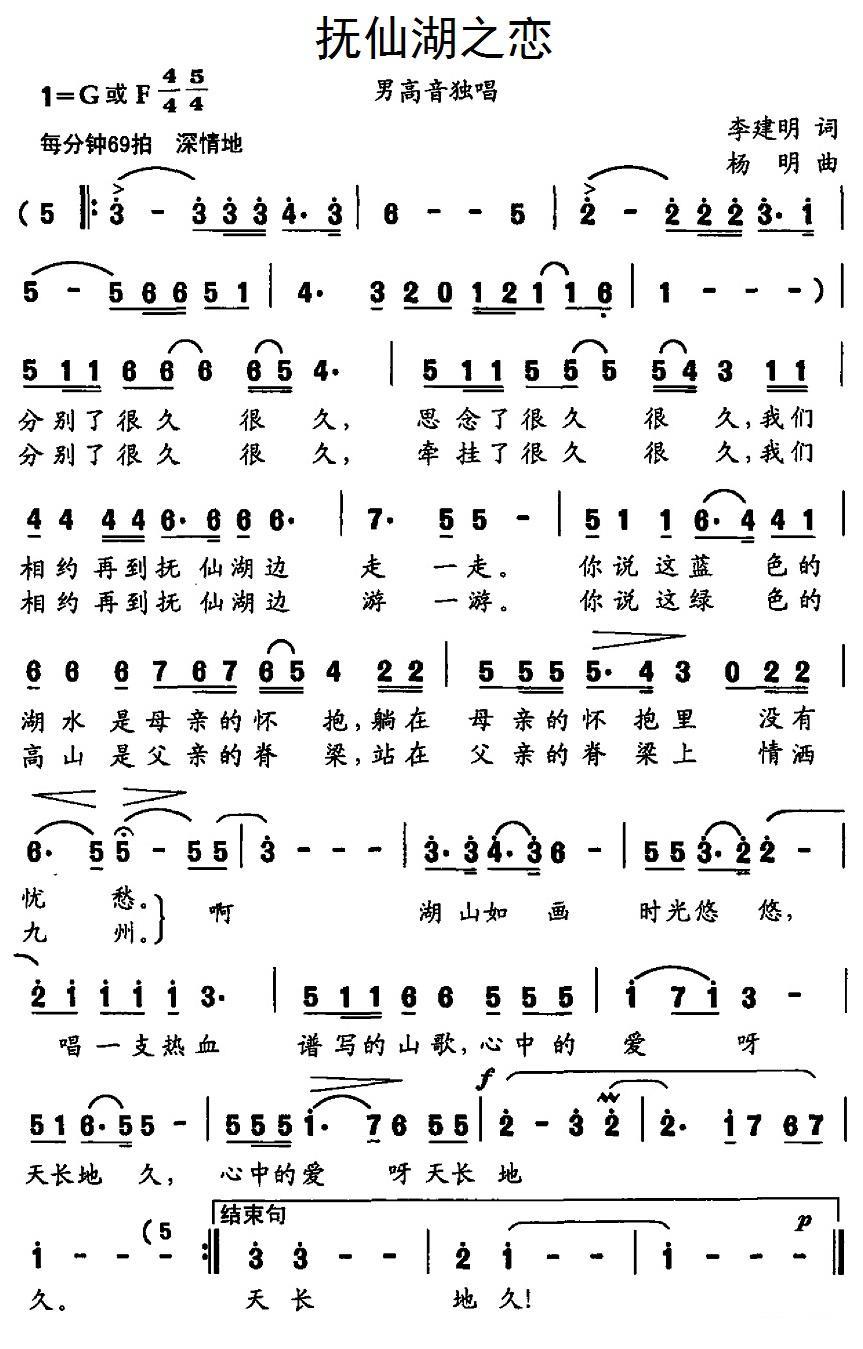 抚仙湖之恋
1=G或F 4/4 5/4
男高音独唱
李建明 词
每分钟69拍 深情地
杨 明 曲
(5 ‖: 3̇ - 3̇ 3̇ 3̇ 4̇· 3̇ | 6 - - 5 | 2̇ - 2̇ 2̇ 2̇ 3̇· 1̇ |
5 - 5 6 6 5 1 | 4· 3 2 0 1 2 1 1 6̣ | 1 - - - ) |
5 1 1 6 6 6 6 5 4· | 5 1 1 5 5 5 5 4 3 1 1 |
分别了很久 很 久, 思念了很久 很 久,我们
分别了很久 很 久, 牵挂了很久 很 久,我们
4 4 4 4 6· 6 6 6· | 7· 5 5 - | 5 1 1 6· 4 4 1 |
相约再到抚仙湖边 走 一走。 你说这蓝 色的
相约再到抚仙湖边 游 一游。 你说这绿 色的
6 6 6 7 6 7 6 5 4 2 2 | 5 5 5 5· 4 3 0 2 2 |
湖水是母亲的怀 抱,躺在 母亲的怀抱里 没有
高山是父亲的脊 梁,站在 父亲的脊梁上 情洒
6· 5 5̇ - 5 5 | 3̇ - - - | 3̇· 3̇ 4̇· 3̇ 6 - | 5 5 3̇· 2̇ 2̇ - |
忧 愁。} 啊 湖山如 画 时光悠 悠,
九 州。}
2̇ 1̇ 1̇ 1̇ 1̇ 3· | 5 1 1 6 6 5 5 5 | 1̇ 7 1̇ 3 - |
唱一支热血 谱写的山歌,心中的 爱 呀
f
5 1 6· 5 5 - | 5 5 5 1̇· 7 6 5 5 | 2̇ - 3̇ 2̇ | 2̇· 1̇ 7 6 7 |
天长地 久, 心中的爱 呀天长 地
结束句 p
1̇ - - (5 - :‖ 3̇ 3̇ - - | 2̇ 1̇ - - | 1̇ - - - ‖
久。 天长 地久!